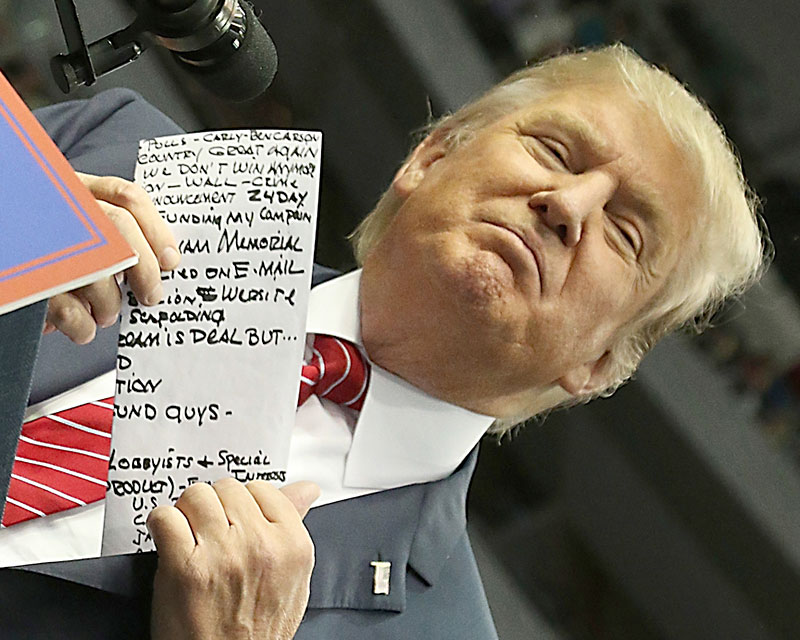 POLLS - CARLY - BEN CARSON
COUNTRY GREAT AGAIN
WE DON'T WIN ANYMORE
ON - WALL - CRIME
NOUNCEMENT 24 DAY
FUNDING MY CAMPAIN
MEMORIAL
ON E-MAIL
WEBSITE
SCAFOLDING
EAM IS DEAL BUT...
D
TION
UND GUYS -
LOBBYISTS + SPECIAL
INTERESS
U.S.